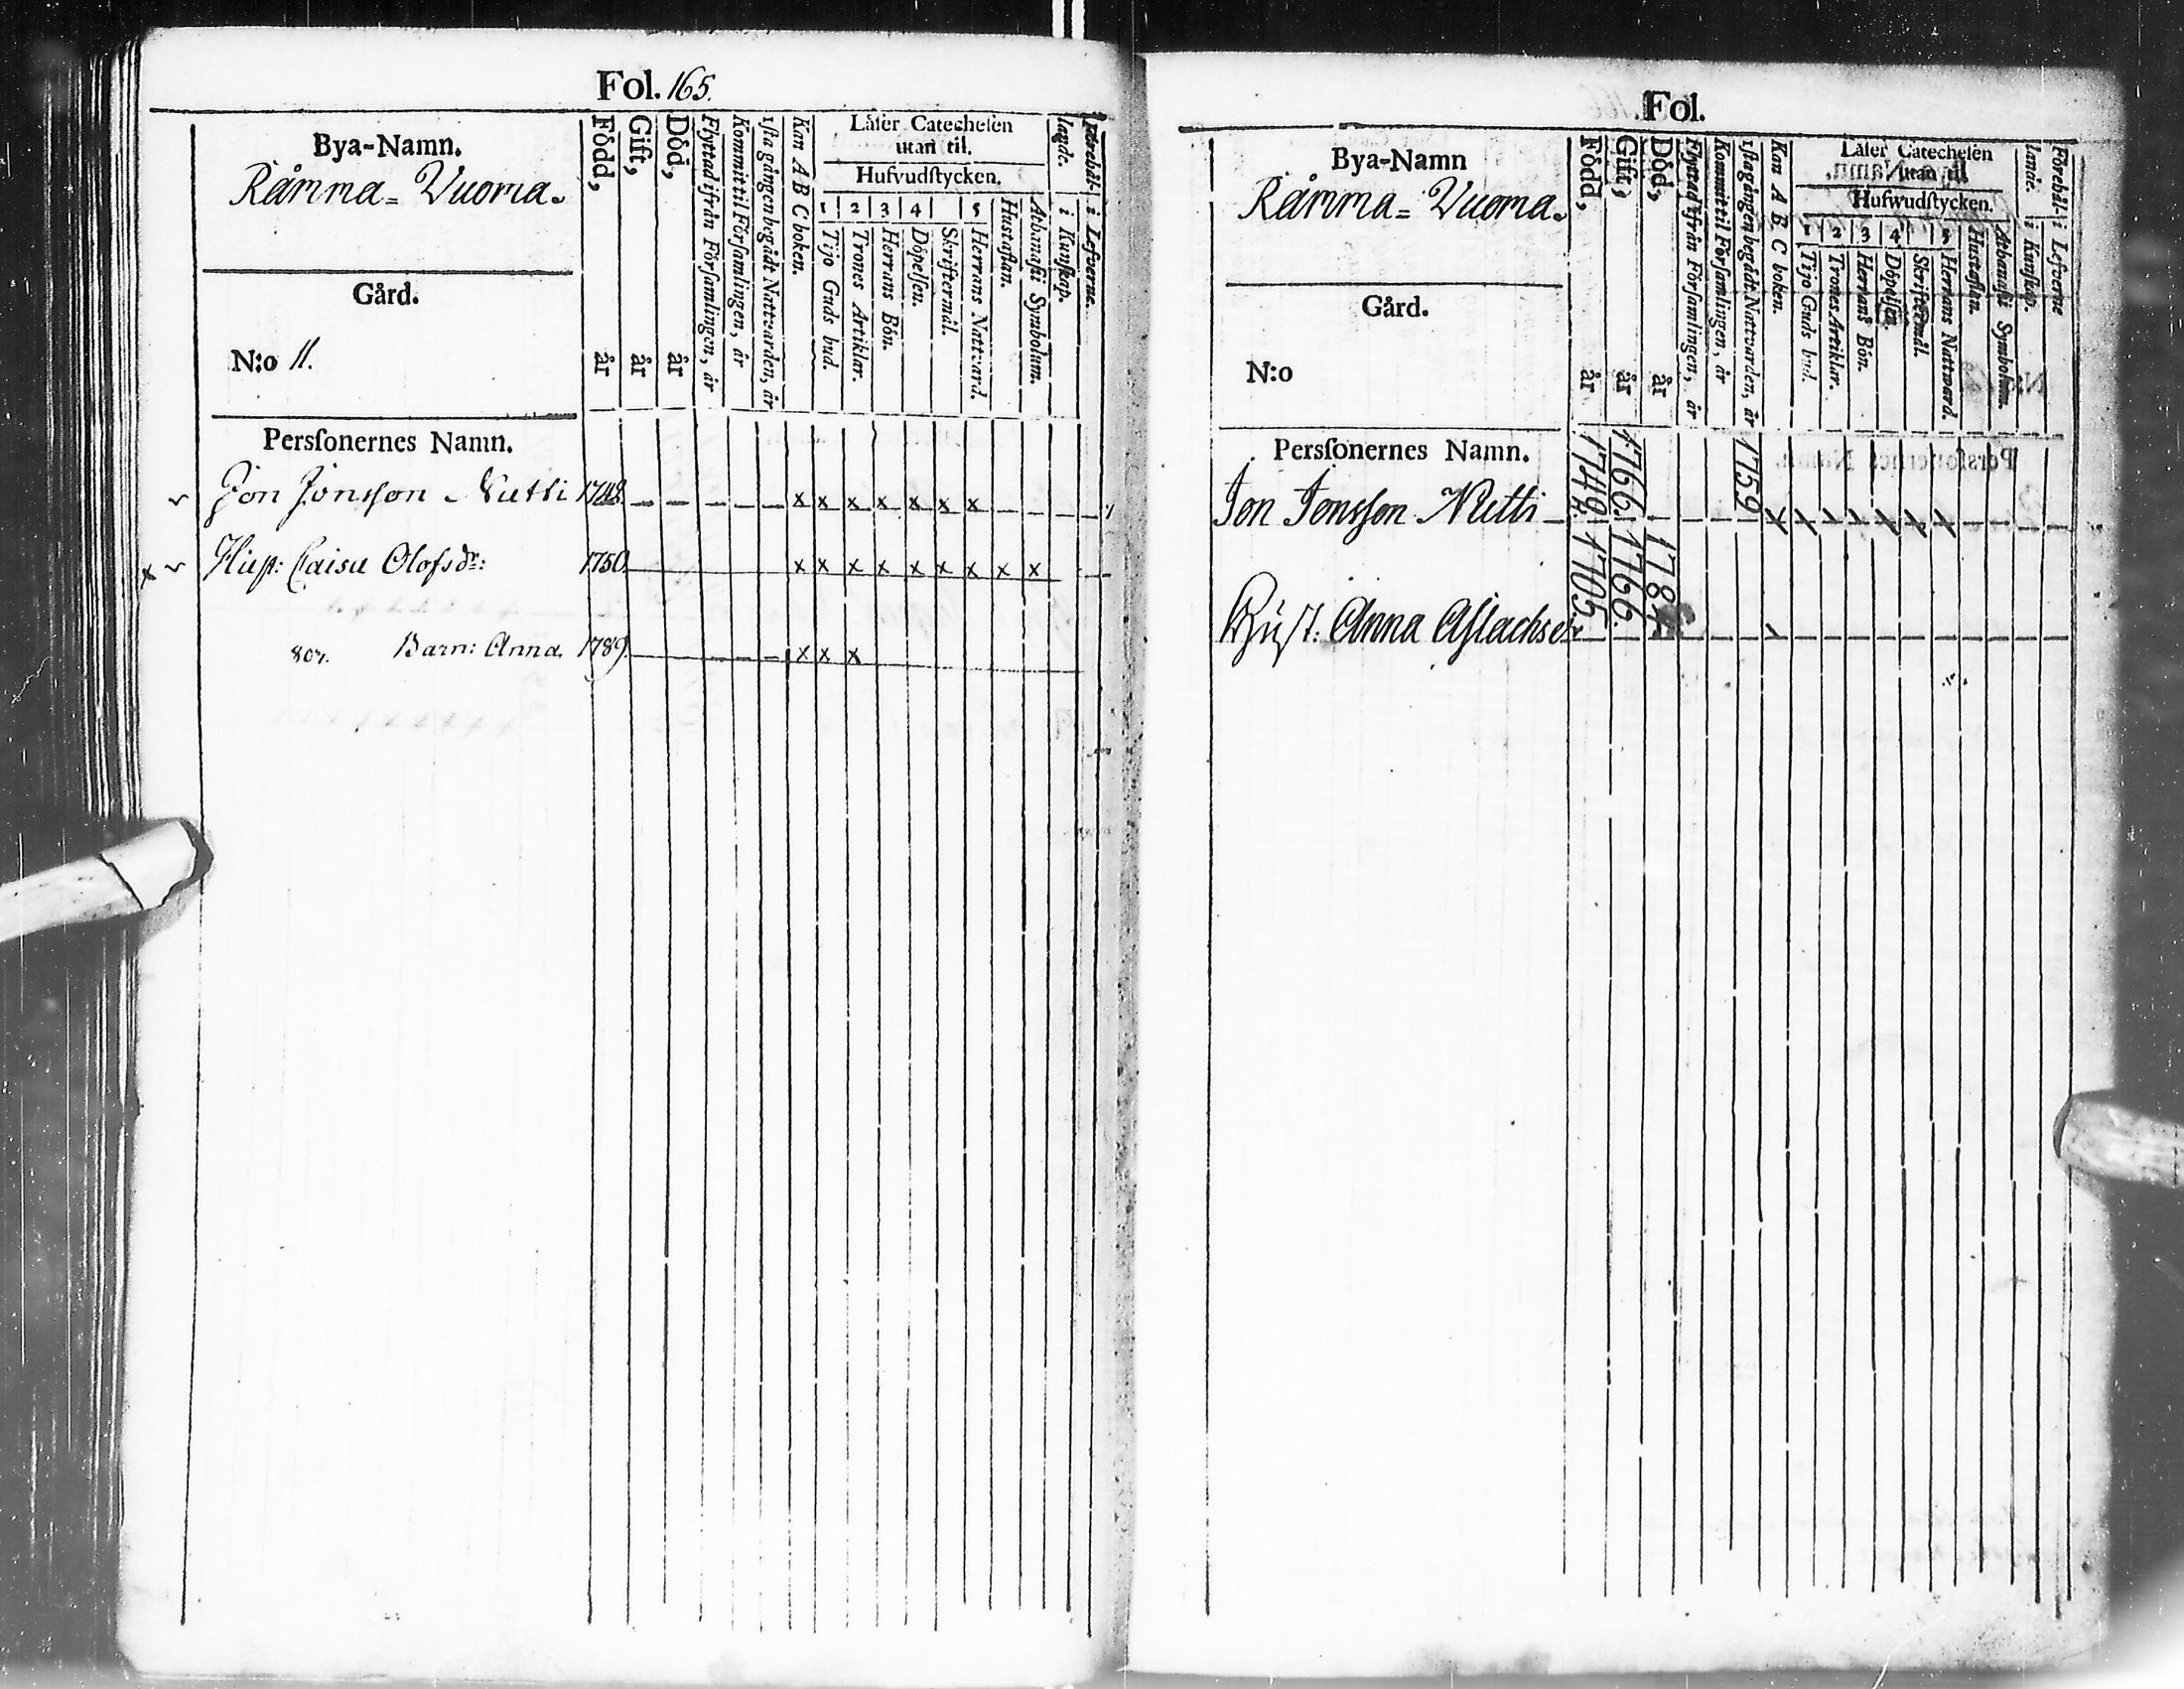 Fol. 165.
Bya-Namn.
Råmma= Vuoma.
Gård.
N:o 11.
Född, år
Gift, år
Död, år
Flyttad ifrån Församlingen, år
Kommit til Församlingen, år
1sta gången begådt Nattvarden, år
Kan A B C boken.
Läser Catechesen
utan til.
Hufvudstycken.
1 2 3 4 5
Tijo Guds bud.
Trones Artiklar.
Herrans Bön.
Döpelsen.
Skriftermål.
Herrans Nattvard.
Hustaflan.
Athanasii Symbolum.
Förehål-
lande.
i Kunskap.
i Lefverne.
Personernes Namn.
Jon Jonsson Nutti 1748. x x x x x x x
x Hust: Caisa Olofsdr: 1750. x x x x x x x x x
807. Barn: Anna. 1789. x x x
Fol.
Bya-Namn
Råmma= Vuoma.
Gård.
N:o
Född, år
Gift, år
Död, år
Flyttad ifrån Församlingen, år
Kommit til Församlingen, år
1sta gången begått Nattvarden, år
Kan A B C boken.
Läser Catechesen
utan til
Hufwudstycken.
1 2 3 4 5
Tijo Guds bud.
Trones Artiklar.
Herrans Bön.
Döpelsen.
Skriftermål.
Herrans Nattvard.
Hustaflan.
Athanasii Symbolum.
Förehål-
lande.
i Kunskap.
i Lefverne
Personernes Namn.
Jon Jonsson Nutti 1766. 1759
Hust. Anna Aslachsdr 1705. 1766.